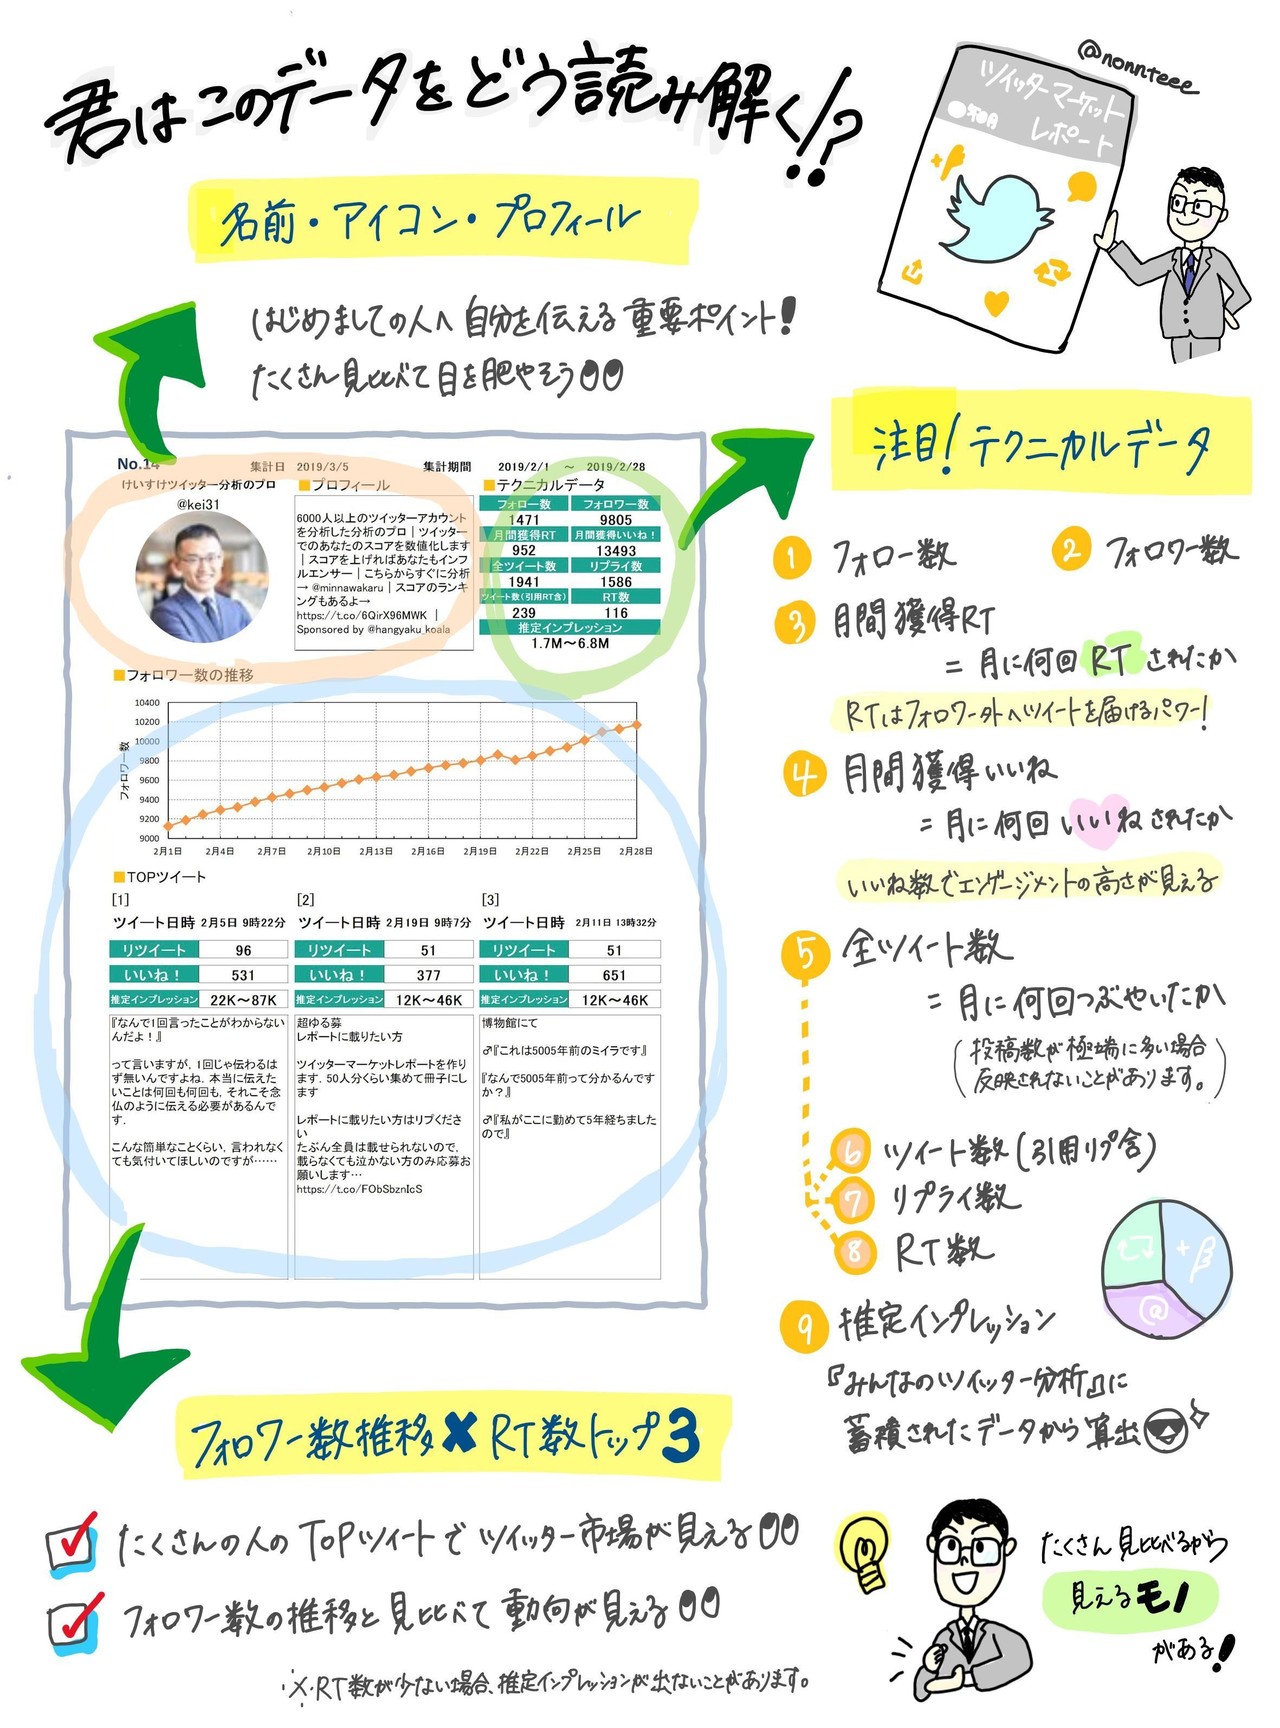 君はこのデータをどう読み解く!?
@nonnteee
ツイッターマーケット
レポート
名前・アイコン・プロフィール
はじめましての人へ自分を伝える重要ポイント!
たくさん見比べて目を肥やそう
No.14
集計日 2019/3/5
集計期間 2019/2/1 ～ 2019/2/28
けいすけツイッター分析のプロ
@kei31
■プロフィール
6000人以上のツイッターアカウント
を分析した分析のプロ｜ツイッター
でのあなたのスコアを数値化します
｜スコアを上げればあなたもインフ
ルエンサー｜こちらからすぐに分析
→ @minnawakaru｜スコアのランキ
ングもあるよ→
https://t.co/6QirX96MWK ｜
Sponsored by @hangyaku_koala
■テクニカルデータ
フォロー数 フォロワー数
1471 9805
月間獲得RT 月間獲得いいね！
952 13493
全ツイート数 リプライ数
1941 1586
ツイート数(引用RT含) RT数
239 116
推定インプレッション
1.7M～6.8M
■フォロワー数の推移
フォロワー数
10400
10200
10000
9800
9600
9400
9200
9000
2月1日 2月4日 2月7日 2月10日 2月13日 2月16日 2月19日 2月22日 2月25日 2月28日
■TOPツイート
[1]
ツイート日時 2月5日 9時22分
リツイート 96
いいね！ 531
推定インプレッション 22K～87K
『なんで1回言ったことがわからない
んだよ！』
って言いますが、1回じゃ伝わるは
ず無いんですよね。本当に伝えた
いことは何回も何回も、それこそ念
仏のように伝える必要があるんで
す。
こんな簡単なことくらい、言われなく
ても気付いてほしいのですが……
[2]
ツイート日時 2月19日 9時7分
リツイート 51
いいね！ 377
推定インプレッション 12K～46K
超ゆる募
レポートに載りたい方
ツイッターマーケットレポートを作り
ます。50人分くらい集めて冊子にし
ます
レポートに載りたい方はリプくださ
い
たぶん全員は載せられないので、
載らなくても泣かない方のみ応募お
願いします…
https://t.co/FObSbznIcS
[3]
ツイート日時 2月11日 13時32分
リツイート 51
いいね！ 651
推定インプレッション 12K～46K
博物館にて
♂『これは5005年前のミイラです』
『なんで5005年前って分かるんです
か？』
♂『私がここに勤めて5年経ちました
ので』
注目!テクニカルデータ
1 フォロー数
2 フォロワー数
3 月間獲得RT
=月に何回RTされたか
RTはフォロワー外へツイートを届けるパワー!
4 月間獲得いいね
=月に何回いいねされたか
いいね数でエンゲージメントの高さが見える
5 全ツイート数
=月に何回つぶやいたか
(投稿数が極端に多い場合
反映されないことがあります。)
6 ツイート数(引用リプ含)
7 リプライ数
8 RT数
@
9 推定インプレッション
『みんなのツイッター分析』に
蓄積されたデータから算出
フォロワー数推移×RT数トップ3
たくさんの人のTOPツイートでツイッター市場が見える
フォロワー数の推移と見比べて動向が見える
※RT数が少ない場合、推定インプレッションが出ないことがあります。
たくさん見比べるから
見えるモノ
がある!